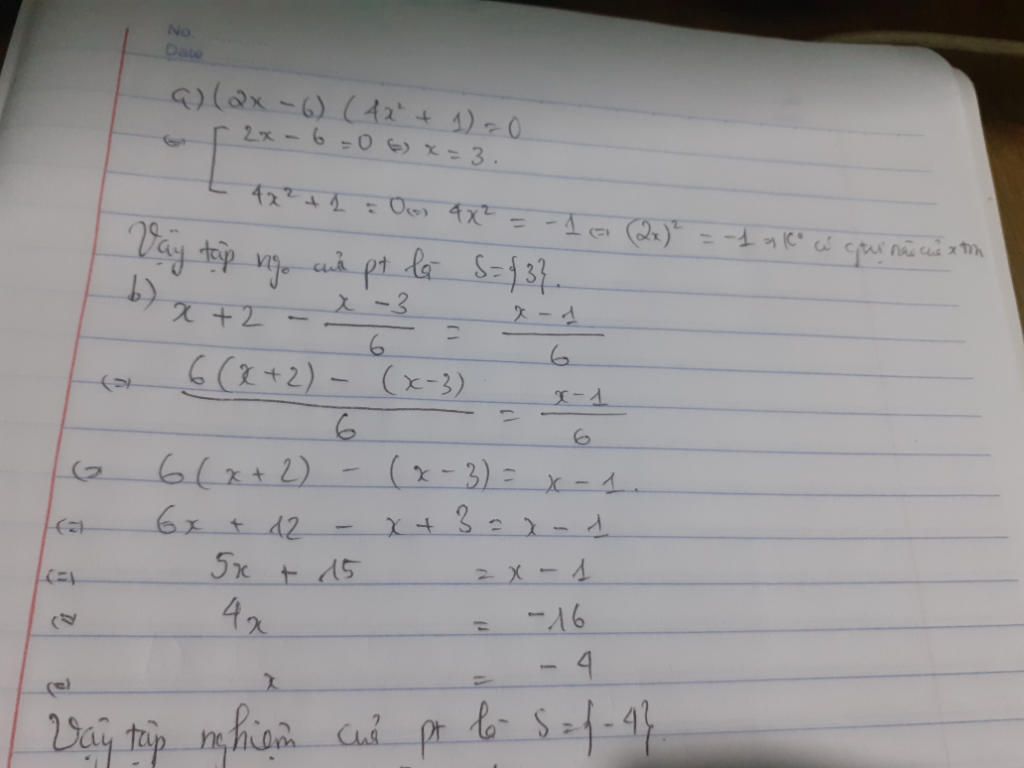 No.
Date
a) (2x - 6) (4x² + 1) = 0
⇔ [ 2x - 6 = 0 ⇔ x = 3.
4x² + 1 = 0 ⇔ 4x² = -1 ⇔ (2x)² = -1 → K° có gtrị nào của x tm
Vậy tập ng. của pt là S = {3}.
b) x + 2 - \frac{x - 3}{6} = \frac{x - 1}{6}
⇔ \frac{6(x + 2) - (x - 3)}{6} = \frac{x - 1}{6}
⇔ 6(x + 2) - (x - 3) = x - 1.
⇔ 6x + 12 - x + 3 = x - 1
⇔ 5x + 15 = x - 1
⇔ 4x = -16
⇔ x = -4
Vậy tập nghiệm của pt là S = {-4}